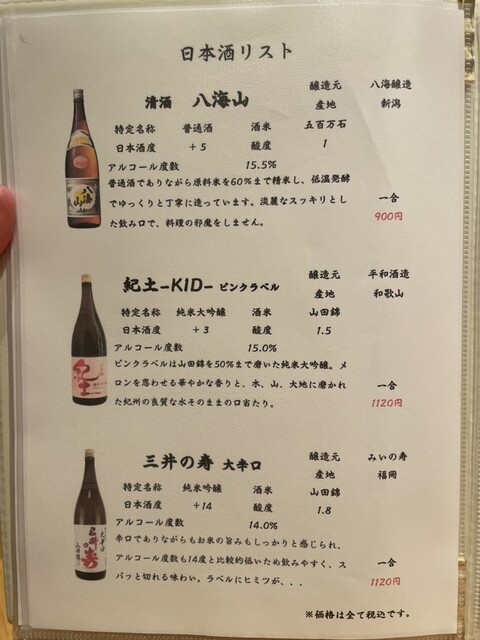 日本酒リスト
清酒 八海山 醸造元 八海醸造
産地 新潟
特定名称 普通酒 酒米 五百万石
日本酒度 +5 酸度 1
アルコール度数 15.5%
普通酒でありながら原料米を60%まで精米し、低温発酵
でゆっくりと丁寧に造っています。淡麗なスッキリとし
た飲み口で、料理の邪魔をしません。
一合
900円
八海山
紀土-KID- ピンクラベル 醸造元 平和酒造
産地 和歌山
特定名称 純米大吟醸 酒米 山田錦
日本酒度 +3 酸度 1.5
アルコール度数 15.0%
ピンクラベルは山田錦を50%まで磨いた純米大吟醸。メ
ロンを思わせる華やかな香りと、木、山、大地に磨かれ
た紀州の良質な水そのままの口当たり。
一合
1120円
紀土
三井の寿 大辛口 醸造元 みいの寿
産地 福岡
特定名称 純米吟醸 酒米 山田錦
日本酒度 +14 酸度 1.8
アルコール度数 14.0%
辛口でありながらもお米の旨みもしっかりと感じられ、
アルコール度数も14度と比較的低いため飲みやすく、ス
パッと切れる味わい。ラベルにヒミツが、、、
一合
1120円
大辛口
三井の寿
※価格は全て税込です。